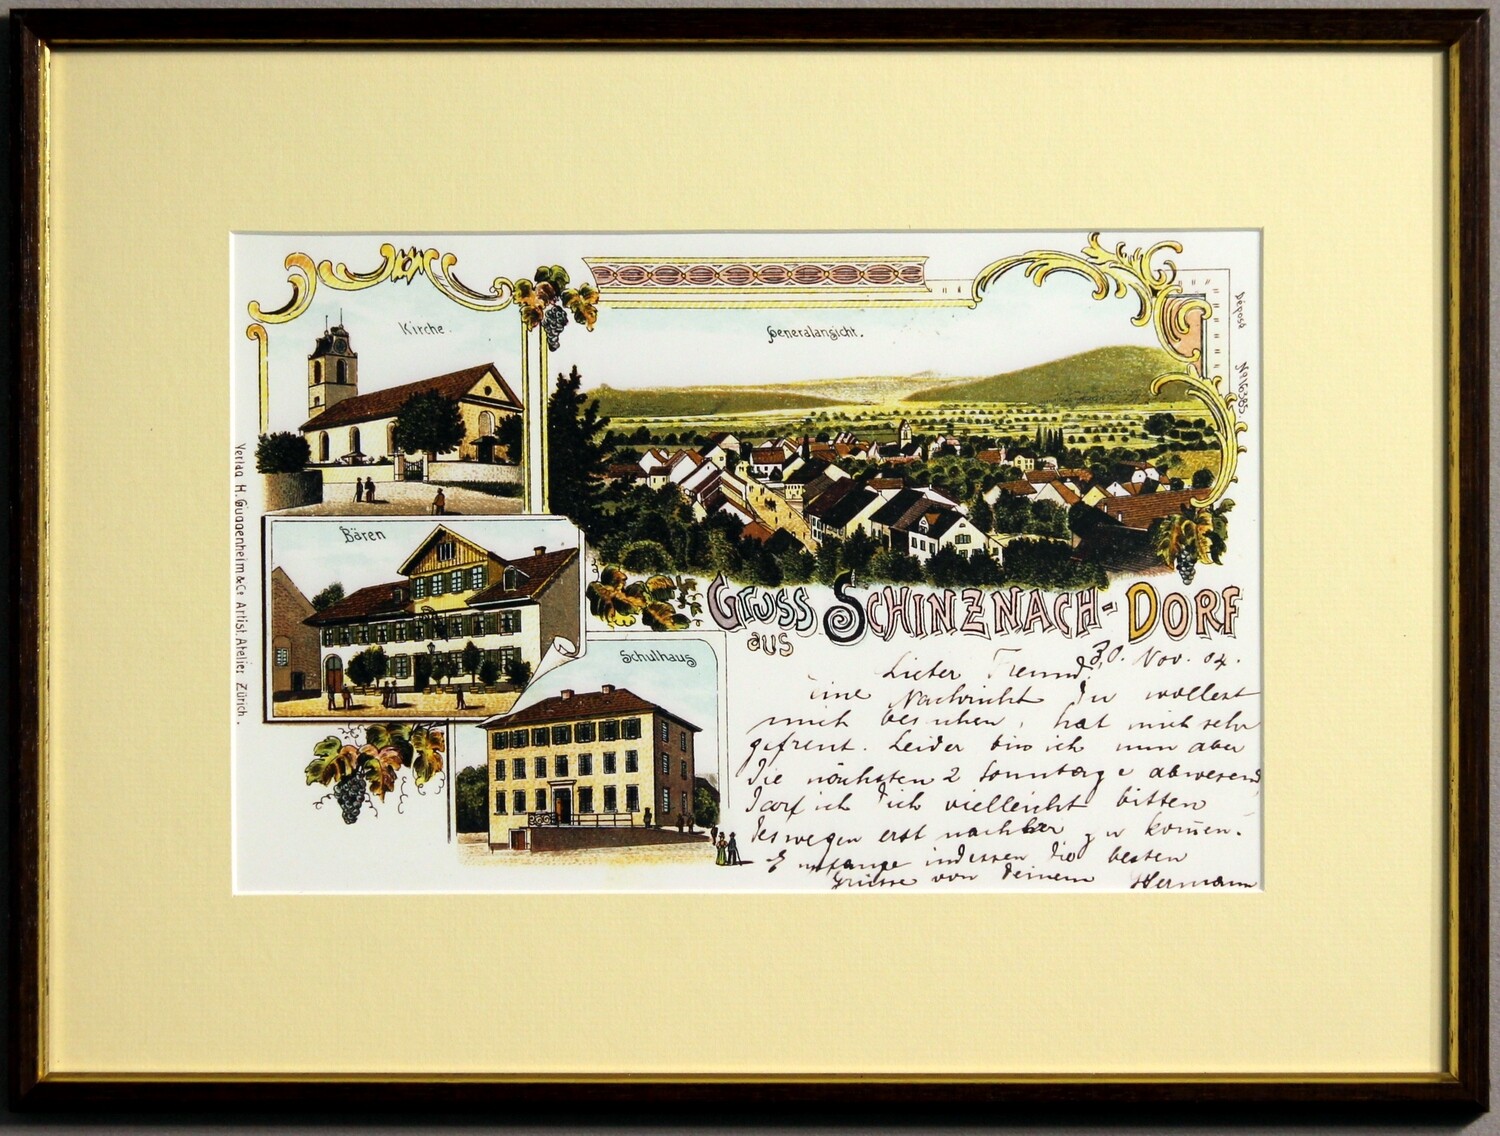 Kirche.
Generalansicht.
Dèposé № 16585.
Bären
Schulhaus
Verlag H. Guggenheim & Co Artist. Atelier Zürich.
GRUSS
aus
SCHINZNACH-DORF
30. Nov. 04.
Lieber Freund!
Eine Nachricht Du wollest
mich besuchen, hat mich sehr
gefreut. Leider bin ich nun aber
die nächsten 2 Sonntage abwesend
darf ich dich vielleicht bitten
deswegen erst nachher zu kommen.
Empfange indessen die besten
Grüsse von deinem Hermann